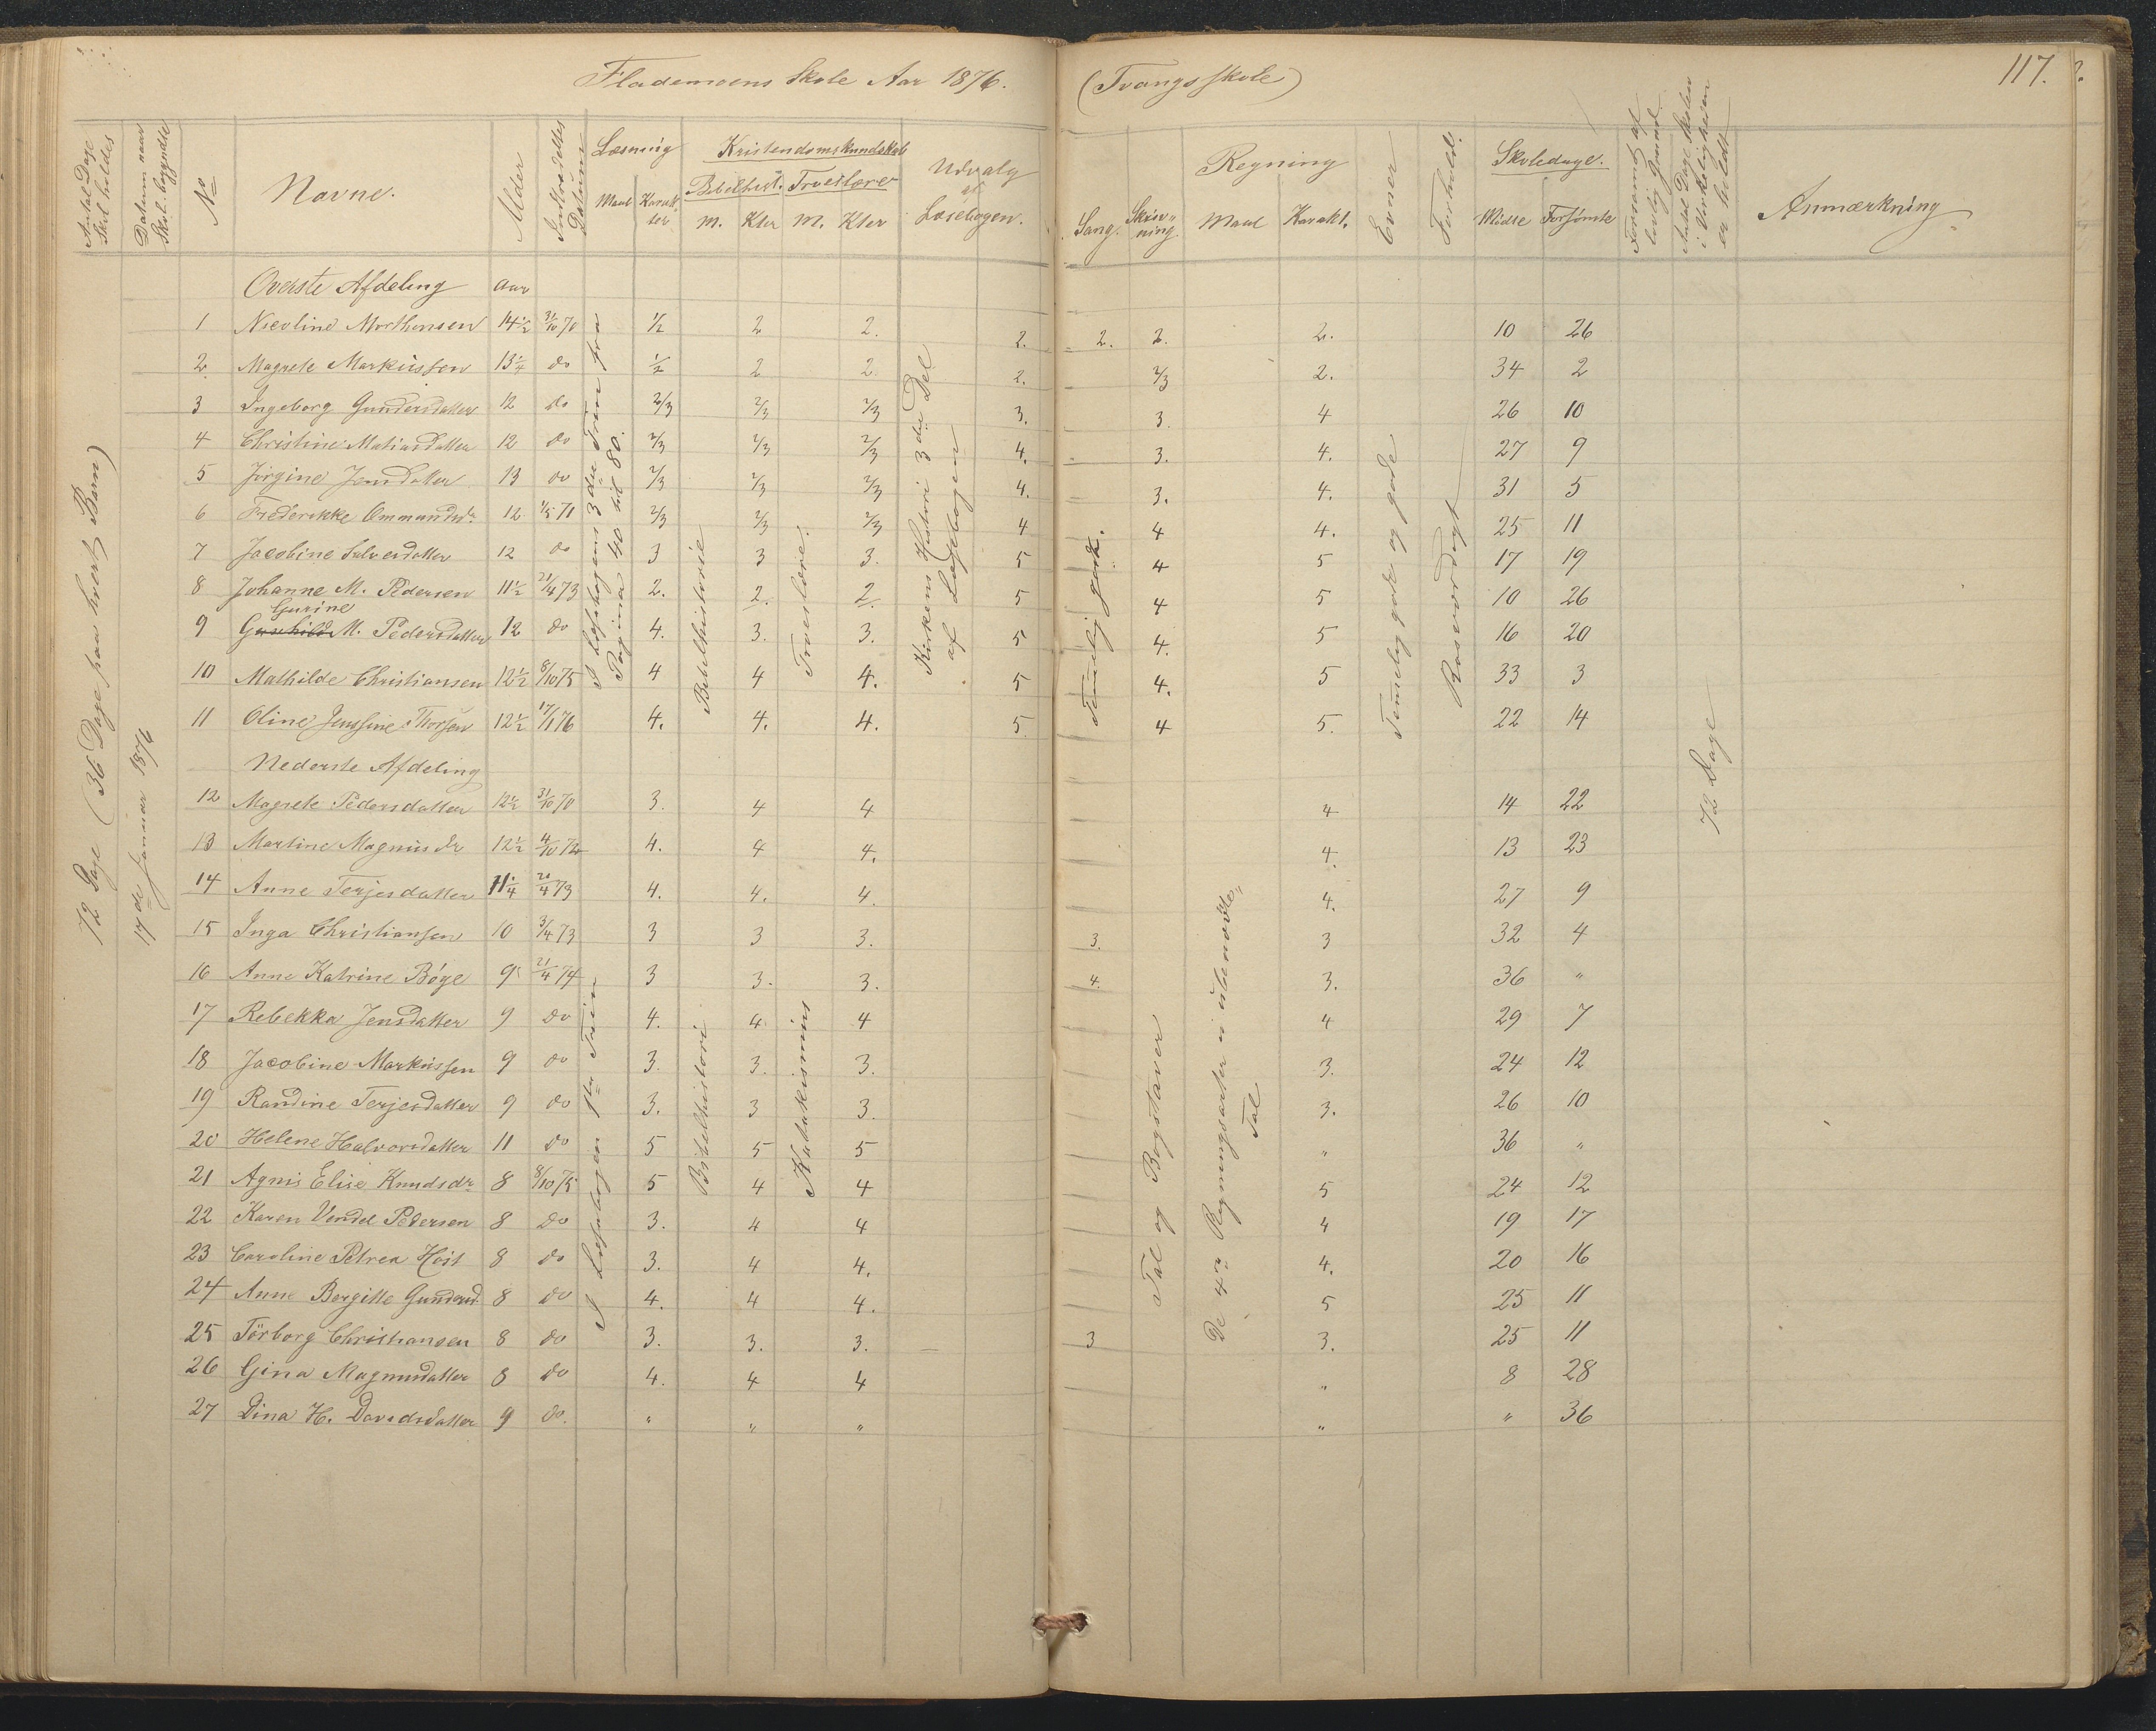 Flademoens Skole Aar 1876. (Tvangsskole) 117.
Antal Dage Skol. holdes
Datum naar Skol. begyndte
No
Navne.
Alder
Indtrædelses Datum
Læsning
Maal Karakter
Kristendomskundskab
Bibelhist. Troeslære
M. Kter M. Kter
Udvalg af Læsebogen.
Sang. Skrivning.
Regning
Maal Karakt.
Evner
Forhold.
Skoledage.
Mødte Forsømte
Forsømt af lovlig Grund
Antal Dage Skolen i Virkeligheden er holdt
Anmærkning
72 Dage (36 Dage paa hvert Barn)
17de Januar 1876
Øverste Afdeling Aar
1 Nicoline Morthensen 14½ 31/10 70 ½ 2 2. 2. 2. 2. 2. 10 26
2 Magrete Markussen 13¼ do ½ 2 2. 2. 2/3 2. 34 2
3 Ingeborg Gundersdatter 12 do 2/3 2/3 2/3 3. 3. 4 26 10
4 Christine Matiasdatter 12 do 2/3 2/3 2/3 4. 3. 4. 27 9
5 Jørgine Jensdatter 13 do 2/3 2/3 2/3 4. 3. 4. 31 5
6 Frederikke Ommundsdr. 12 1/5 71 2/3 2/3 2/3 4 4 4. 25 11
7 Jacobine Salvesdatter 12 do 3 3 3. 5 4 5 17 19
8 Johanne M. Pedersen 11½ 21/4 73 2. 2. 2. 5 4 5 10 26
Gurine
9 M. Pedersdatter 12 do 4. 3. 3. 5 4. 5 16 20
10 Mathilde Christiansen 12½ 8/10 75 4 4 4. 5 4. 5 33 3
11 Oline Jenssine Thorsen 12½ 17/1 76 4. 4. 4. 5 4 5. 22 14
I Læsebogens 3die Trin fra Pagina 40 til 80.
Bibelhistorie
Troeslære.
Kirkens Historie 3die Del af Læsebogen
Temelig godt.
Temelig gode og gode
Roesværdigt
72 Dage
Nederste Afdeling
12 Magrete Pedersdatter 12½ 31/10 70 3. 4 4 4 14 22
13 Martine Magnusdr 12½ 4/10 72 4. 4 4. 4. 13 23
14 Anne Terjesdatter 11¼ 20/4 73 4. 4. 4. 4. 27 9
15 Inga Christiansen 10 3/4 73 3 3 3. 3. 3 32 4
16 Anne Katrine Bøge 9 21/4 74 3 3. 3. 4. 3. 36 "
17 Rebekka Jensdatter 9 do 4. 4 4 4 29 7
18 Jacobine Markussen 9 do 3. 3. 3. 3. 24 12
19 Randine Terjesdatter 9 do 3. 3 3. 3. 26 10
20 Helene Halvorsdatter 11 do 5 5 5 " 36 "
21 Agnis Elise Knudsdr. 8 8/10 75 5 4 4 5 24 12
22 Karen Vendel Pedersen 8 do 3. 4 4 4 19 17
23 Caroline Petrea Høst 8 do 3. 4 4. 4. 20 16
24 Anne Bergitte Gundersd. 8 do 4. 4 4. 5 25 11
25 Törborg Christiansen 8 do 3. 3. 3. 3 3. 25 11
26 Gina Magnusdatter 8 do 4. 4 4 " 8 28
27 Dina H. Davidsdatter 9 do. " " " " " 36
I Læsebogen 1ste Trin
Bibelhistori
Katakismus
Tal og Bogstaver
De 4re Regningsarter i ubenævnte Tal